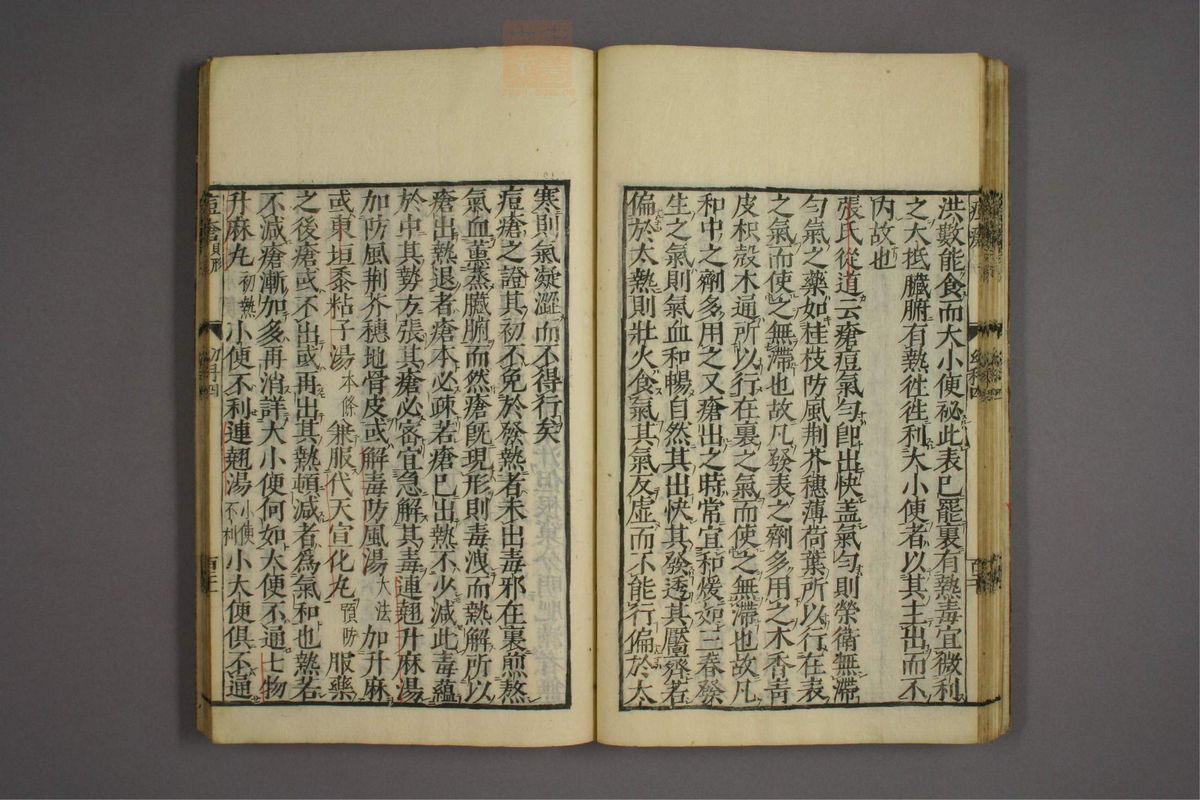 洪數能食而大小便祕此表已罷裏有熱毒宜微利
之大抵臟腑有熱徃徃利大小便者以其主出而不
内故也
張氏從道云瘡痘氣匀即出快盖氣匀則榮衛無滯
匀氣之藥如桂枝防風荆芥穗薄荷葉所以行在表
之氣而使之無滯也故凡發表之劑多用之木香青
皮枳殼木通所以行在裏之氣而使之無滯也故凡
和中之劑多用之又瘡出之時常宜和緩如三春發
生之氣則氣血和暢自然其出快其發透其靨齊若
偏於太熱則壯火食氣其氣反虛而不能行偏於太
寒則氣凝澀而不得行矣
痘瘡之證其初不免於發熱者未出毒邪在裏煎熬
氣血薫蒸臟腑而然瘡既現形則毒洩而熱解所以
瘡出熱退者瘡本必疎若瘡已出熱不少減此毒蘊
於中其勢方張其瘡必密宜急解其毒連翹升麻湯
加防風荆芥穗地骨皮或解毒防風湯大法加升麻
或東垣黍粘子湯本條兼服代天宣化丸預防服藥
之後瘡或不出或再出其熱頓減者為氣和也熱若
不減瘡漸加多再消詳大小便何如大便不通七物
升麻丸初熱小便不利連翹湯小便不利小大便俱不通
痘瘡見形